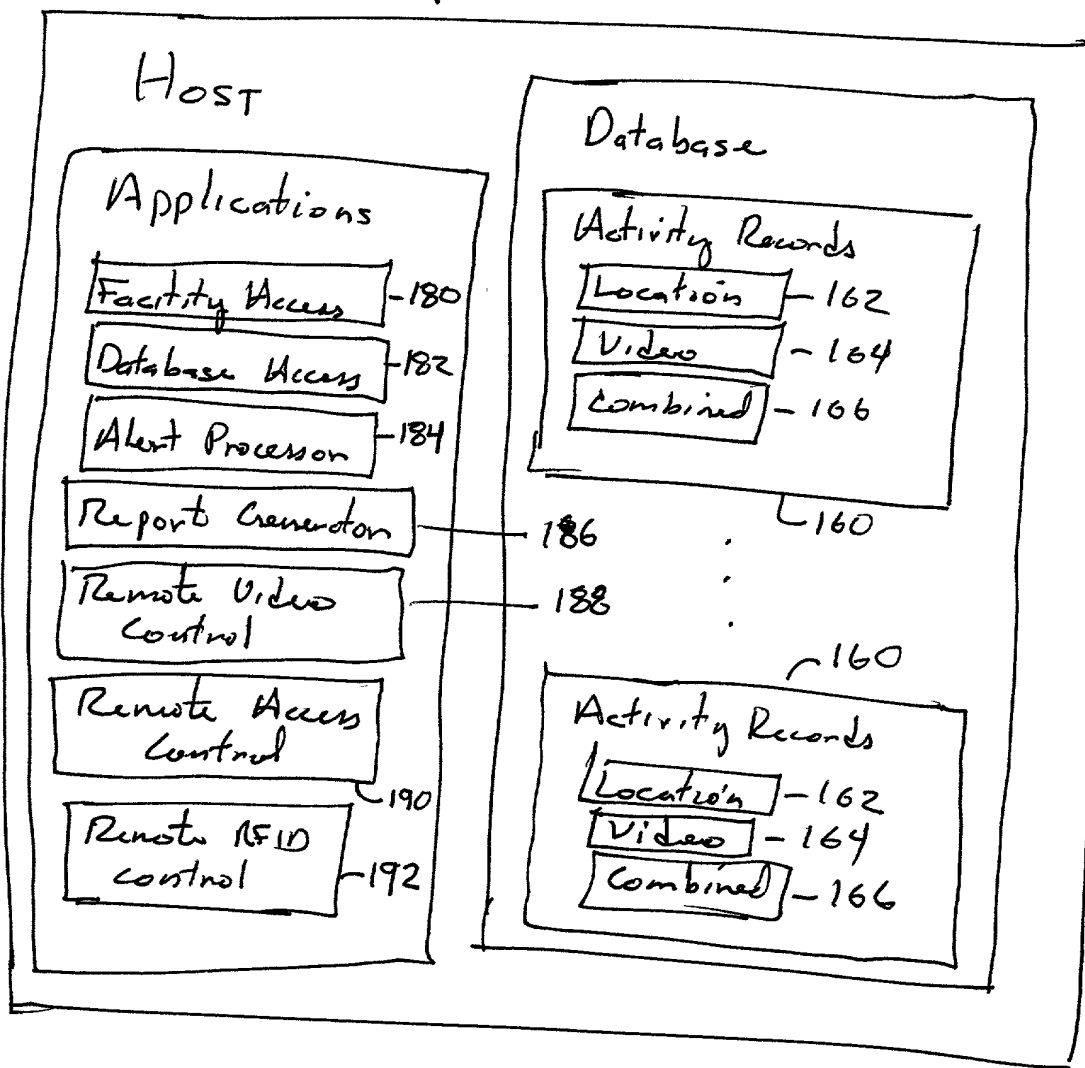 HOST
Applications
Facility Access - 180
Database Access - 182
Alert Processor - 184
Report Generator - 186
Remote Video
Control - 188
Remote Access
Control
190
Remote RFID
control - 192
Database
Activity Records
Location - 162
Video - 164
Combined - 166
160
160
Activity Records
Location - 162
Video - 164
Combined - 166